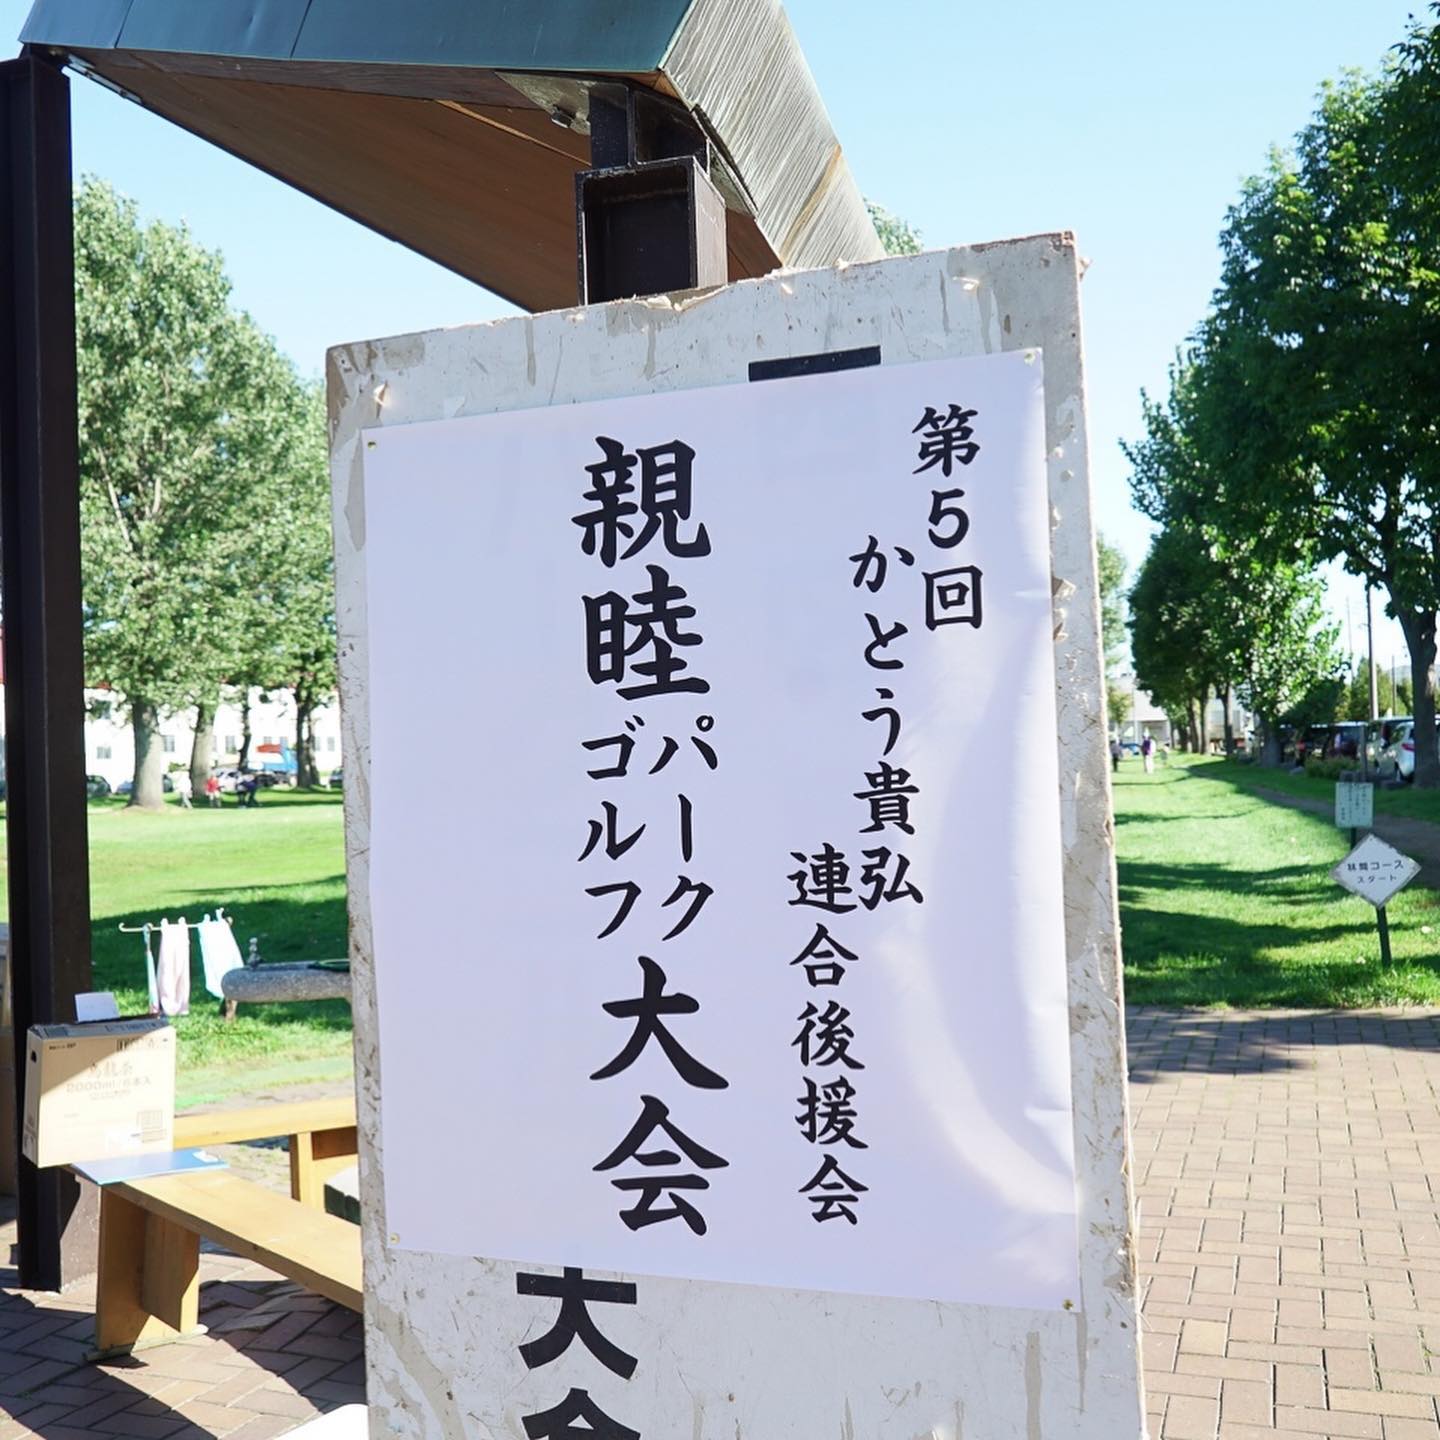 第5回
かとう貴弘
連合後援会
親睦
パーク
ゴルフ
大会
大会
林間コース
スタート
2000ml/6本入